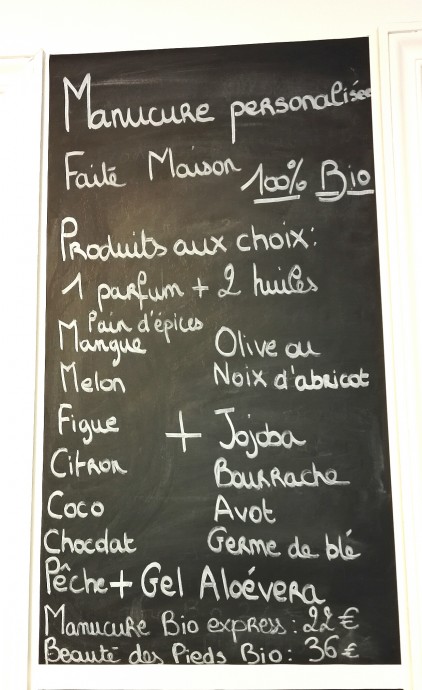 Manucure personalisée
Faite Maison 100% Bio
Produits aux choix:
1 parfum + 2 huiles
Pain d'épices
Mangue Olive ou
Melon Noix d'abricot
Figue + Jojoba
Citron Bourrache
Coco Avot
Chocolat Germe de blé
Pêche + Gel Aloévera
Manucure Bio express: 22€
Beauté des Pieds Bio: 36€